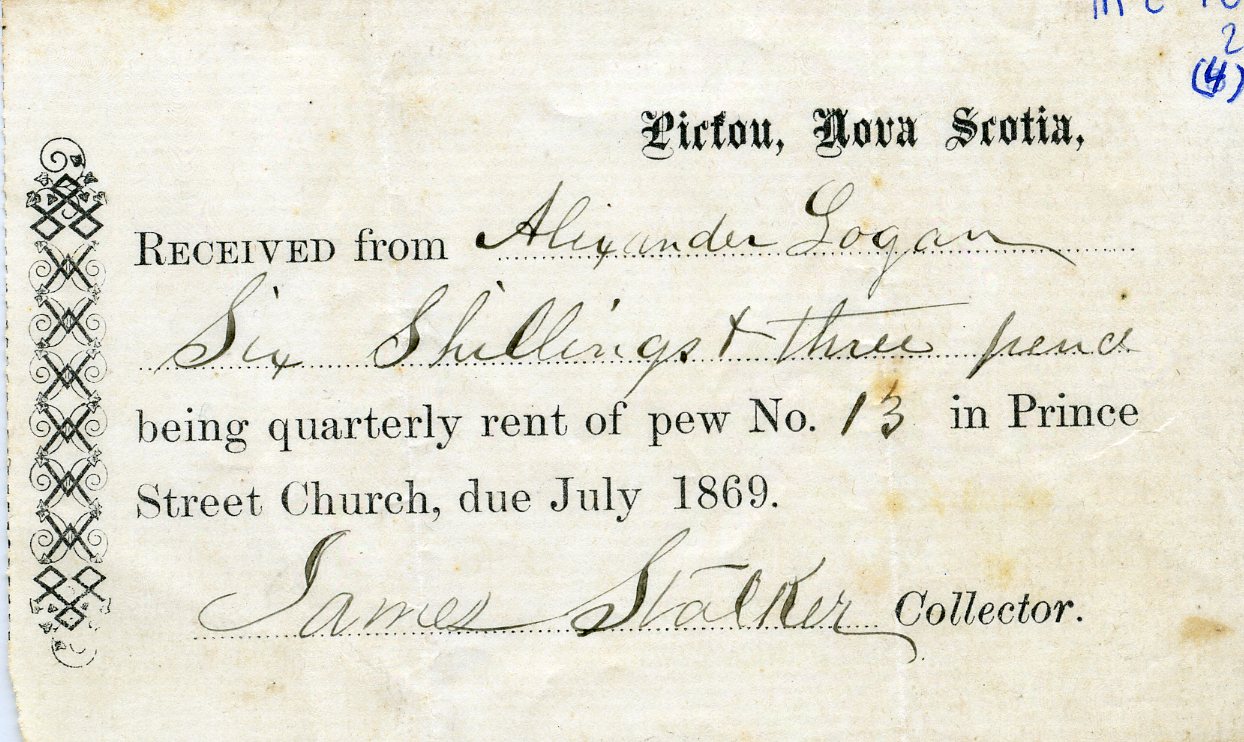 2
(4)
Pictou, Nova Scotia,
RECEIVED from Alixander Logan
Six Shillings & three pence
being quarterly rent of pew No. 13 in Prince
Street Church, due July 1869.
James Stalker Collector.